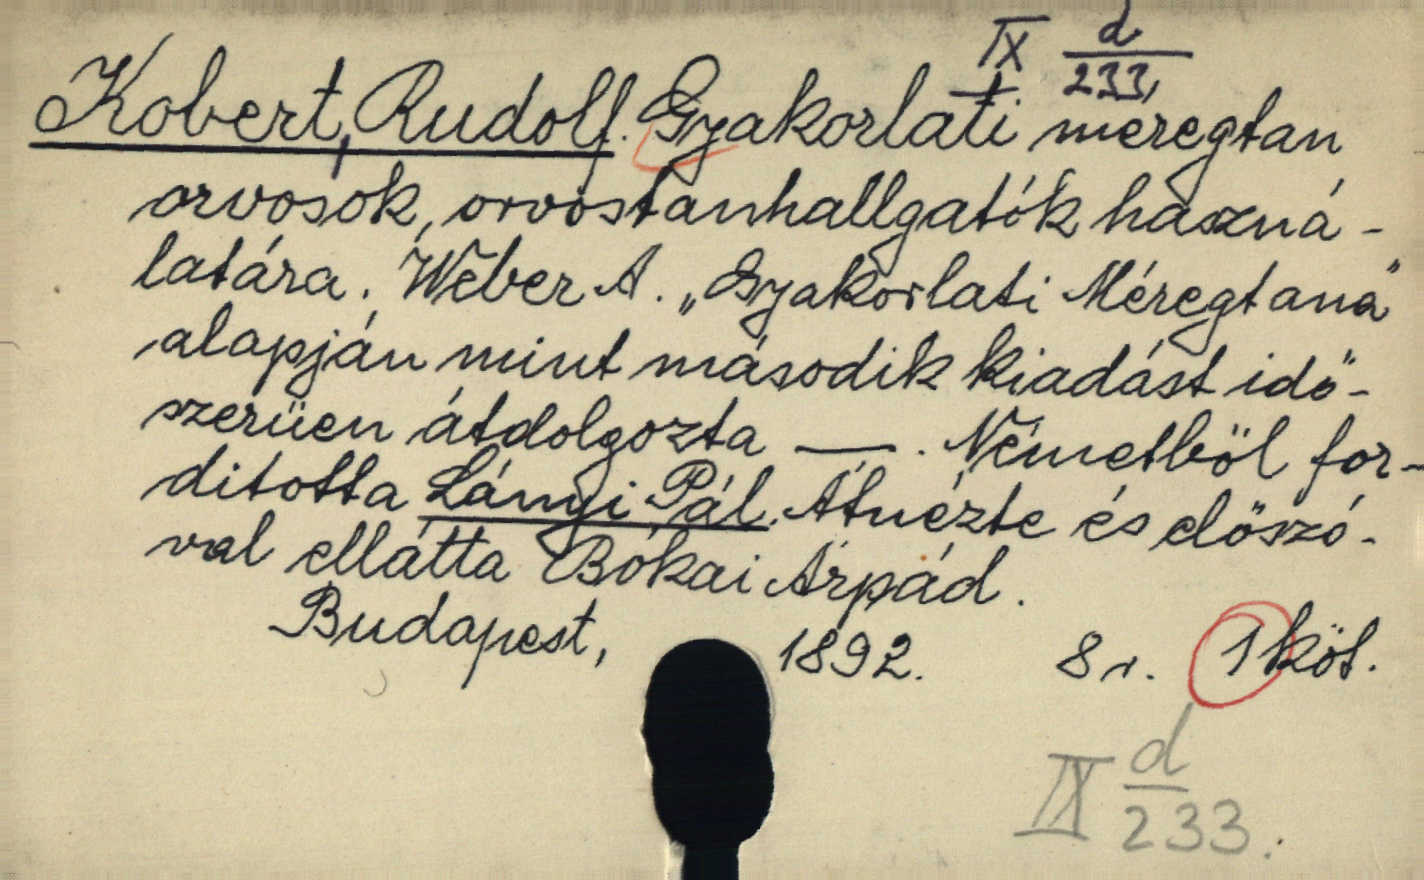 IX d/233,
Kobert, Rudolf. Gyakorlati méregtan
orvosok, orvostanhallgatók haszná-
latára. Weber A. „Gyakorlati Méregtana"
alapján mint második kiadást idő-
szerüen átdolgozta —. Németből for-
ditotta Lányi Pál. Átnézte és előszó-
val ellátta Bókai Árpád.
Budapest, 1892. 8r. 1 köt.
IX d/233.